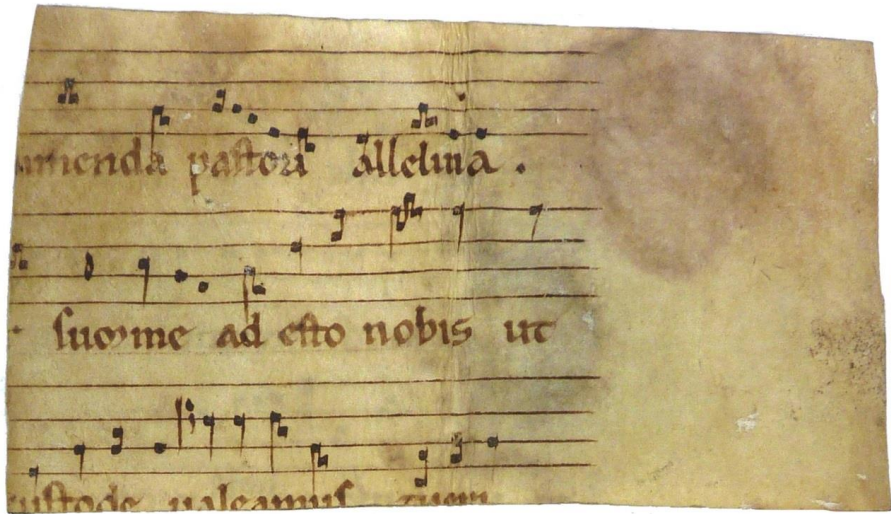 menda pastori alleluia .
summe ad esto nobis ut
custode ualeamus tuem